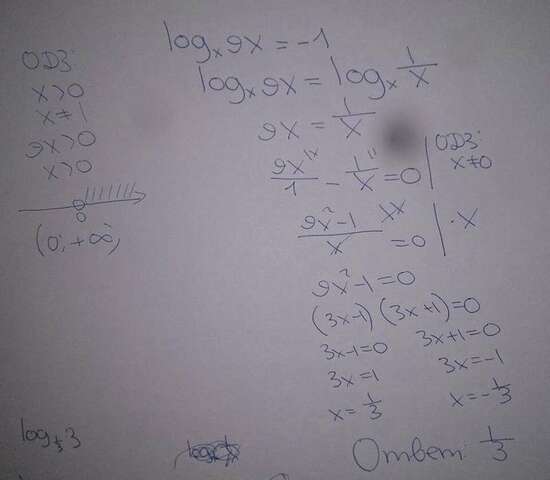 ОДЗ:
x>0
x≠1
9x>0
x>0
0
(0; +∞)
log_x 9x = -1
log_x 9x = log_x 1/x
9x = 1/x
9x/1 - 1/x = 0 | ОДЗ: x≠0
(9x²-1)/x = 0 | ·x
9x²-1=0
(3x-1)(3x+1)=0
3x-1=0 3x+1=0
3x=1 3x=-1
x=1/3 x=-1/3
Ответ: 1/3